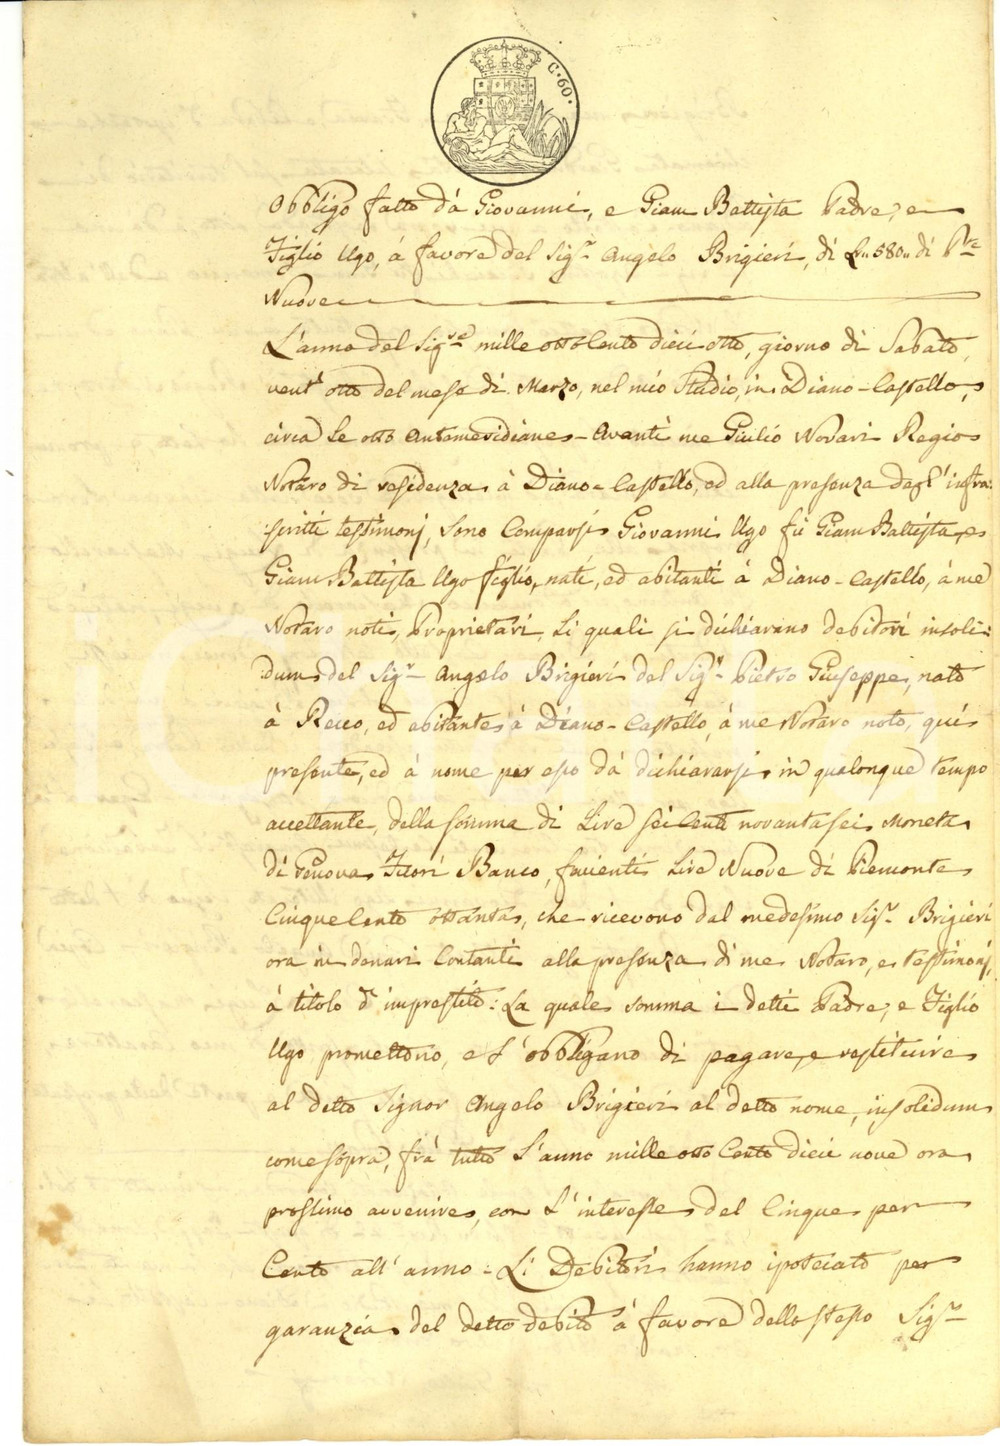 C. 60.
Obbligo fatto dà Giovanni, e Giam Battista Padre, e
Figlio Ugo, à favore del Sig.r Angelo Brigieri, di Ln. 580 n. di P.te
Nuove
L'anno del Sig.re mille otto Cento dieci otto, giorno di Sabato,
vent' otto del mese di Marzo, nel mio Studio, in Diano-Castello,
circa le otto Antemeridiane - Avanti me Giulio Novari Regio
Notaro di residenza à Diano-Castello, ed alla presenza dagl' infra:
scritti testimonj, sono Comparsi Giovanni Ugo fù Giam Battista, e
Giam Battista Ugo figlio, nati, ed abitanti à Diano-Castello, à me
Notaro noti, Proprietari, li quali si dichiarano debitori insoli:
dum del Sig.r Angelo Brigieri del Sig.r Pietro Giuseppe, nato
à Recco, ed abitante à Diano-Castello, à me Notaro noto, quì
presente, ed à nome per esso dà dichiararsi in qualonque tempo
accettante, della somma di Lire sei Cento novanta sei Moneta
di Genova Fuori Banco, facienti Lire Nuove di Piemonte
Cinque Cento ottanta, che ricevono dal medesimo Sig.r Brigieri
ora in denari Contanti alla presenza di me Notaro, e testimonj,
à titolo d' imprestito: La quale somma i detti Padre, e Figlio
Ugo promettono, e s' obbligano di pagare, e restituire
al detto Signor Angelo Brigieri al detto nome, insolidum
come sopra, frà tutto l'anno mille otto Cento dieci nove ora
prossimo avvenire, con l' interesse del Cinque per
Cento all' anno - Li Debitori hanno ipotecato per
garanzia del detto debito à favore dello stesso Sig.r